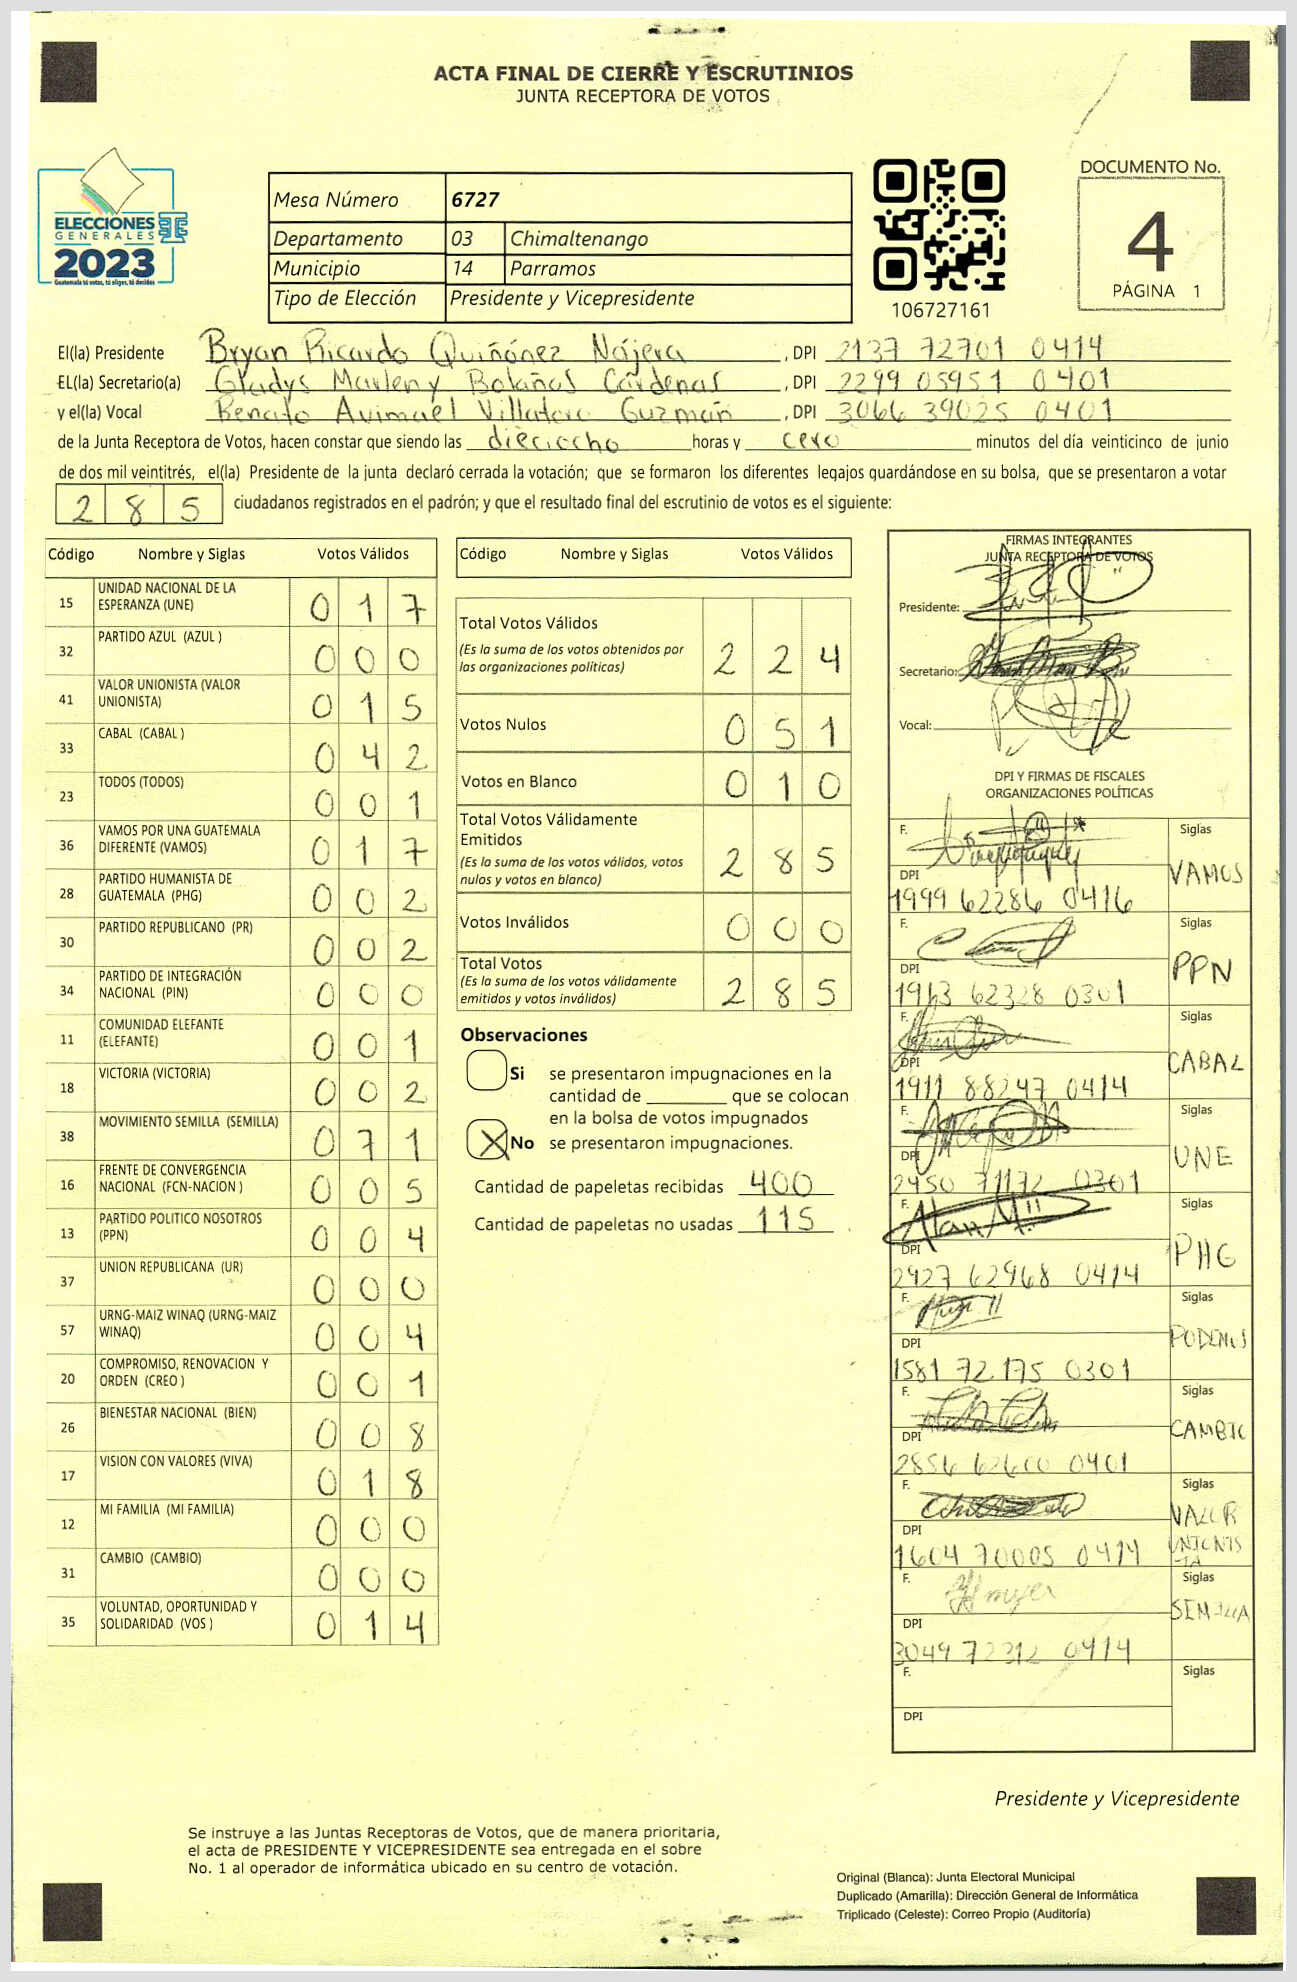 ACTA FINAL DE CIERRE Y ESCRUTINIOS
JUNTA RECEPTORA DE VOTOS
ELECCIONES
GENERALES
2023
Guatemala tú votas, tú eliges, tú decides
Mesa Número 6727
Departamento 03 Chimaltenango
Municipio 14 Parramos
Tipo de Elección Presidente y Vicepresidente
106727161
DOCUMENTO No.
4
PÁGINA 1
El(la) Presidente Bryan Ricardo Quiñónez Nájera, DPI 2137 72701 0414
EL(la) Secretario(a) Gladys Marleny Bolaños Cárdenas, DPI 2299 05951 0401
y el(la) Vocal Renato Avimael Villatoro Guzmán, DPI 3066 39025 0401
de la Junta Receptora de Votos, hacen constar que siendo las dieciocho horas y cero minutos del día veinticinco de junio
de dos mil veintitrés, el(la) Presidente de la junta declaró cerrada la votación; que se formaron los diferentes legajos guardándose en su bolsa, que se presentaron a votar
285 ciudadanos registrados en el padrón; y que el resultado final del escrutinio de votos es el siguiente:
Código Nombre y Siglas Votos Válidos
15 UNIDAD NACIONAL DE LA ESPERANZA (UNE) 017
32 PARTIDO AZUL (AZUL ) 000
41 VALOR UNIONISTA (VALOR UNIONISTA) 015
33 CABAL (CABAL ) 042
23 TODOS (TODOS) 001
36 VAMOS POR UNA GUATEMALA DIFERENTE (VAMOS) 017
28 PARTIDO HUMANISTA DE GUATEMALA (PHG) 002
30 PARTIDO REPUBLICANO (PR) 002
34 PARTIDO DE INTEGRACIÓN NACIONAL (PIN) 000
11 COMUNIDAD ELEFANTE (ELEFANTE) 001
18 VICTORIA (VICTORIA) 002
38 MOVIMIENTO SEMILLA (SEMILLA) 071
16 FRENTE DE CONVERGENCIA NACIONAL (FCN-NACION ) 005
13 PARTIDO POLITICO NOSOTROS (PPN) 004
37 UNION REPUBLICANA (UR) 000
57 URNG-MAIZ WINAQ (URNG-MAIZ WINAQ) 004
20 COMPROMISO, RENOVACION Y ORDEN (CREO ) 001
26 BIENESTAR NACIONAL (BIEN) 008
17 VISION CON VALORES (VIVA) 018
12 MI FAMILIA (MI FAMILIA) 000
31 CAMBIO (CAMBIO) 000
35 VOLUNTAD, OPORTUNIDAD Y SOLIDARIDAD (VOS ) 014
Código Nombre y Siglas Votos Válidos
Total Votos Válidos 224
(Es la suma de los votos obtenidos por
las organizaciones políticas)
Votos Nulos 051
Votos en Blanco 010
Total Votos Válidamente
Emitidos 285
(Es la suma de los votos válidos, votos
nulos y votos en blanco)
Votos Inválidos 000
Total Votos 285
(Es la suma de los votos válidamente
emitidos y votos inválidos)
Observaciones
Si se presentaron impugnaciones en la
cantidad de ________ que se colocan
en la bolsa de votos impugnados
X No se presentaron impugnaciones.
Cantidad de papeletas recibidas 400
Cantidad de papeletas no usadas 115
FIRMAS INTEGRANTES
JUNTA RECEPTORA DE VOTOS
Presidente:
Secretario:
Vocal:
DPI Y FIRMAS DE FISCALES
ORGANIZACIONES POLÍTICAS
F. Siglas
VAMOS
DPI
1999 62286 0416
F. Siglas
PPN
DPI
62328 0301
F. Siglas
CABAL
DPI
1911 88247 0414
F. Siglas
UNE
DPI
2450 71172 0301
F. Siglas
PHG
DPI
2927 62968 0414
F. Siglas
PODEMOS
DPI
1581 72175 0301
F. Siglas
CAMBIO
DPI
2856 62600 0401
F. Siglas
VALOR
UNIONIS
TA
DPI
1604 70005 0414
F. Siglas
SEMILLA
DPI
3049 72312 0414
F. Siglas
DPI
Presidente y Vicepresidente
Se instruye a las Juntas Receptoras de Votos, que de manera prioritaria,
el acta de PRESIDENTE Y VICEPRESIDENTE sea entregada en el sobre
No. 1 al operador de informática ubicado en su centro de votación.
Original (Blanca): Junta Electoral Municipal
Duplicado (Amarilla): Dirección General de Informática
Triplicado (Celeste): Correo Propio (Auditoría)